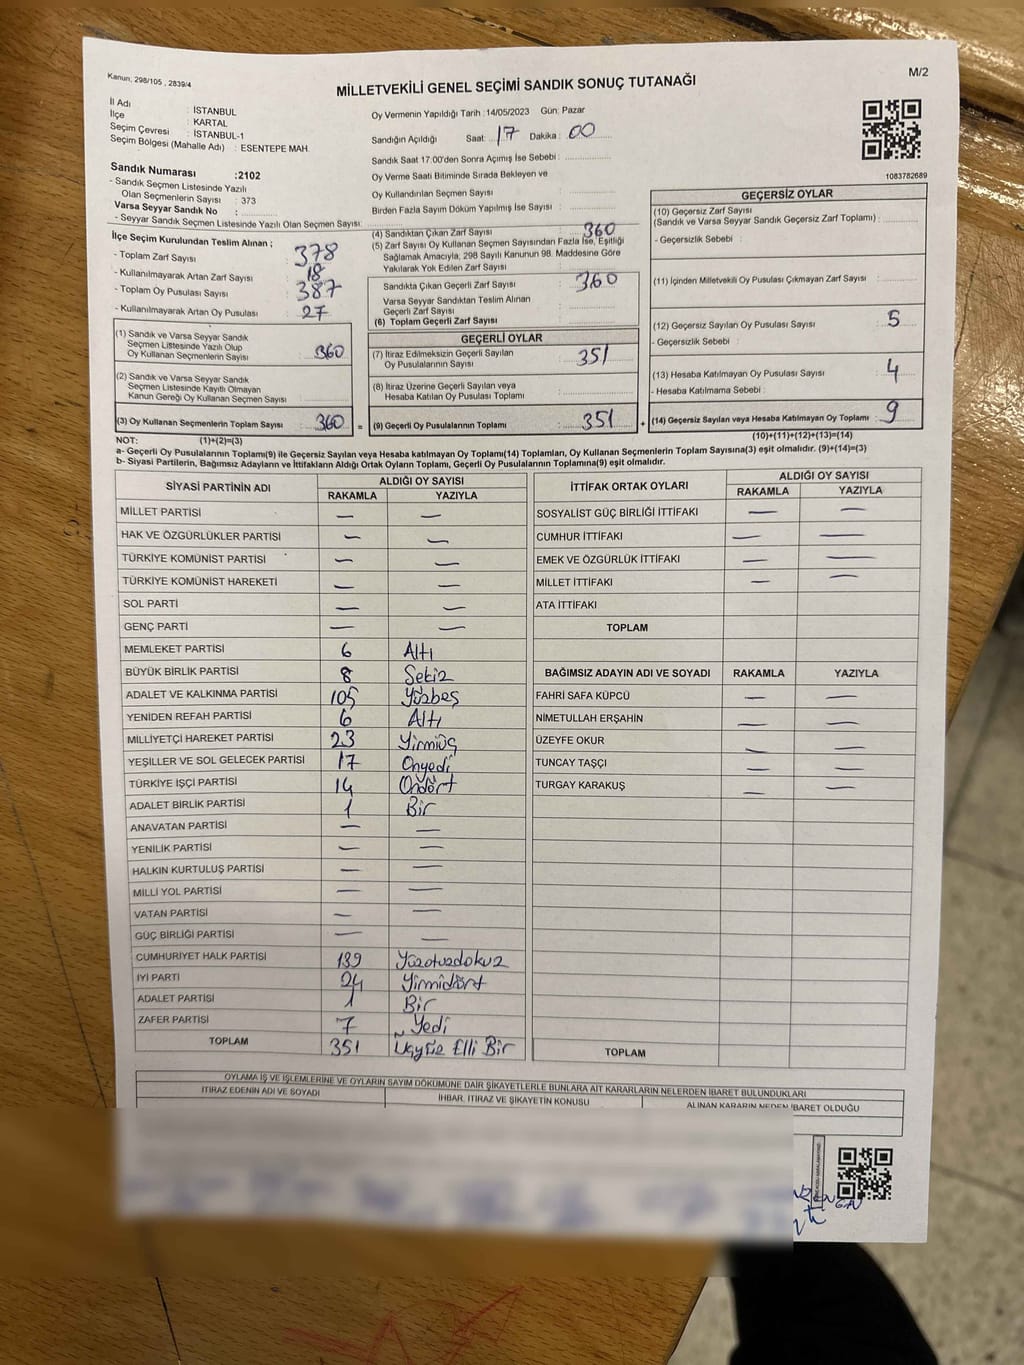 Kanun, 298/105 , 2839/4
M/2
MİLLETVEKİLİ GENEL SEÇİMİ SANDIK SONUÇ TUTANAĞI
İl Adı : İSTANBUL
İlçe : KARTAL
Seçim Çevresi : İSTANBUL-1
Seçim Bölgesi (Mahalle Adı) : ESENTEPE MAH.
Oy Vermenin Yapıldığı Tarih :14/05/2023 Gün: Pazar
Sandığın Açıldığı Saat: 17 Dakika : 00
Sandık Saat 17:00'den Sonra Açımış İse Sebebi :
Oy Verme Saati Bitiminde Sırada Bekleyen ve
Oy Kullandırılan Seçmen Sayısı :
Birden Fazla Sayım Döküm Yapılmış İse Sayısı :
1083782689
Sandık Numarası :2102
- Sandık Seçmen Listesinde Yazılı
Olan Seçmenlerin Sayısı : 373
Varsa Seyyar Sandık No :
- Seyyar Sandık Seçmen Listesinde Yazılı Olan Seçmen Sayısı:
İlçe Seçim Kurulundan Teslim Alınan ;
- Toplam Zarf Sayısı : 378
- Kullanılmayarak Artan Zarf Sayısı : 18
- Toplam Oy Pusulası Sayısı : 387
- Kullanılmayarak Artan Oy Pusulası : 27
(1) Sandık ve Varsa Seyyar Sandık
Seçmen Listesinde Yazılı Olup
Oy Kullanan Seçmenlerin Sayısı : 360
(2) Sandık ve Varsa Seyyar Sandık
Seçmen Listesinde Kayıtlı Olmayan
Kanun Gereği Oy Kullanan Seçmen Sayısı :
(3) Oy Kullanan Seçmenlerin Toplam Sayısı : 360
(4) Sandıktan Çıkan Zarf Sayısı : 360
(5) Zarf Sayısı Oy Kullanan Seçmen Sayısından Fazla İse, Eşitliği
Sağlamak Amacıyla, 298 Sayılı Kanunun 98. Maddesine Göre
Yakılarak Yok Edilen Zarf Sayısı :
Sandıkta Çıkan Geçerli Zarf Sayısı : 360
Varsa Seyyar Sandıktan Teslim Alınan
Geçerli Zarf Sayısı :
(6) Toplam Geçerli Zarf Sayısı :
GEÇERLİ OYLAR
(7) İtiraz Edilmeksizin Geçerli Sayılan
Oy Pusulalarının Sayısı : 351
(8) İtiraz Üzerine Geçerli Sayılan veya
Hesaba Katılan Oy Pusulası Toplamı :
= (9) Geçerli Oy Pusulalarının Toplamı : 351 +
GEÇERSİZ OYLAR
(10) Geçersiz Zarf Sayısı
(Sandık ve Varsa Seyyar Sandık Geçersiz Zarf Toplamı) :
- Geçersizlik Sebebi :
(11) İçinden Milletvekili Oy Pusulası Çıkmayan Zarf Sayısı :
(12) Geçersiz Sayılan Oy Pusulası Sayısı : 5
- Geçersizlik Sebebi :
(13) Hesaba Katılmayan Oy Pusulası Sayısı : 4
- Hesaba Katılmama Sebebi :
(14) Geçersiz Sayılan veya Hesaba Katılmayan Oy Toplamı : 9
NOT: (1)+(2)=(3)
(10)+(11)+(12)+(13)=(14)
a- Geçerli Oy Pusulalarının Toplamı(9) ile Geçersiz Sayılan veya Hesaba katılmayan Oy Toplamı(14) Toplamları, Oy Kullanan Seçmenlerin Toplam Sayısına(3) eşit olmalıdır. (9)+(14)=(3)
b- Siyasi Partilerin, Bağımsız Adayların ve İttifakların Aldığı Ortak Oyların Toplamı, Geçerli Oy Pusulalarının Toplamına(9) eşit olmalıdır.
SİYASİ PARTİNİN ADI ALDIĞI OY SAYISI
RAKAMLA YAZIYLA
MİLLET PARTİSİ — —
HAK VE ÖZGÜRLÜKLER PARTİSİ — —
TÜRKİYE KOMÜNİST PARTİSİ — —
TÜRKİYE KOMÜNİST HAREKETİ — —
SOL PARTİ — —
GENÇ PARTİ — —
MEMLEKET PARTİSİ 6 Altı
BÜYÜK BİRLİK PARTİSİ 8 Sekiz
ADALET VE KALKINMA PARTİSİ 105 Yüzbeş
YENİDEN REFAH PARTİSİ 6 Altı
MİLLİYETÇİ HAREKET PARTİSİ 23 Yirmiüç
YEŞİLLER VE SOL GELECEK PARTİSİ 17 Onyedi
TÜRKİYE İŞÇİ PARTİSİ 14 Ondört
ADALET BİRLİK PARTİSİ 1 Bir
ANAVATAN PARTİSİ — —
YENİLİK PARTİSİ — —
HALKIN KURTULUŞ PARTİSİ — —
MİLLİ YOL PARTİSİ — —
VATAN PARTİSİ — —
GÜÇ BİRLİĞİ PARTİSİ — —
CUMHURİYET HALK PARTİSİ 139 Yüzotuzdokuz
İYİ PARTİ 24 Yirmidört
ADALET PARTİSİ 1 Bir
ZAFER PARTİSİ 7 Yedi
TOPLAM 351 Üçyüz Elli Bir
İTTİFAK ORTAK OYLARI ALDIĞI OY SAYISI
RAKAMLA YAZIYLA
SOSYALİST GÜÇ BİRLİĞİ İTTİFAKI — —
CUMHUR İTTİFAKI — —
EMEK VE ÖZGÜRLÜK İTTİFAKI — —
MİLLET İTTİFAKI — —
ATA İTTİFAKI
TOPLAM
BAĞIMSIZ ADAYIN ADI VE SOYADI RAKAMLA YAZIYLA
FAHRİ SAFA KÜPCÜ — —
NİMETULLAH ERŞAHİN — —
ÜZEYFE OKUR — —
TUNCAY TAŞÇI — —
TURGAY KARAKUŞ — —
TOPLAM
OYLAMA İŞ VE İŞLEMLERİNE VE OYLARIN SAYIM DÖKÜMÜNE DAİR ŞİKAYETLERLE BUNLARA AİT KARARLARIN NELERDEN İBARET BULUNDUKLARI
İTİRAZ EDENİN ADI VE SOYADI İHBAR, İTİRAZ VE ŞİKAYETİN KONUSU ALINAN KARARIN NEDEN İBARET OLDUĞU